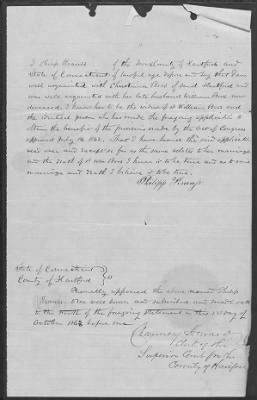 I Philip Krauss of the Town & County of Hartford and
State of Connecticut of lawful age depose and say that I am
well acquainted with Christiana Bros of said Hartford and
was well acquainted with her late husband William Bros now
deceased. I know her to be the widow of William Bros and
the identical person who has made the foregoing application to
obtain the benefit of the provisions made by the Act of Congress
approved July 14, 1862. That I have heard the said application
read over and except so far as the same relates to her marriage
and the death of Wm Bros I know it to be true and as to said
marriage and death I believe it to be true.
Philipp Krauss
State of Connecticut
County of Hartford
Personally appeared the above named Philip
Krauss and subscribed and made oath
to the truth of the foregoing statement in this day of
October 1862 before me
Chauncey Howard
Clerk of the
Superior Court for the
County of Hartford